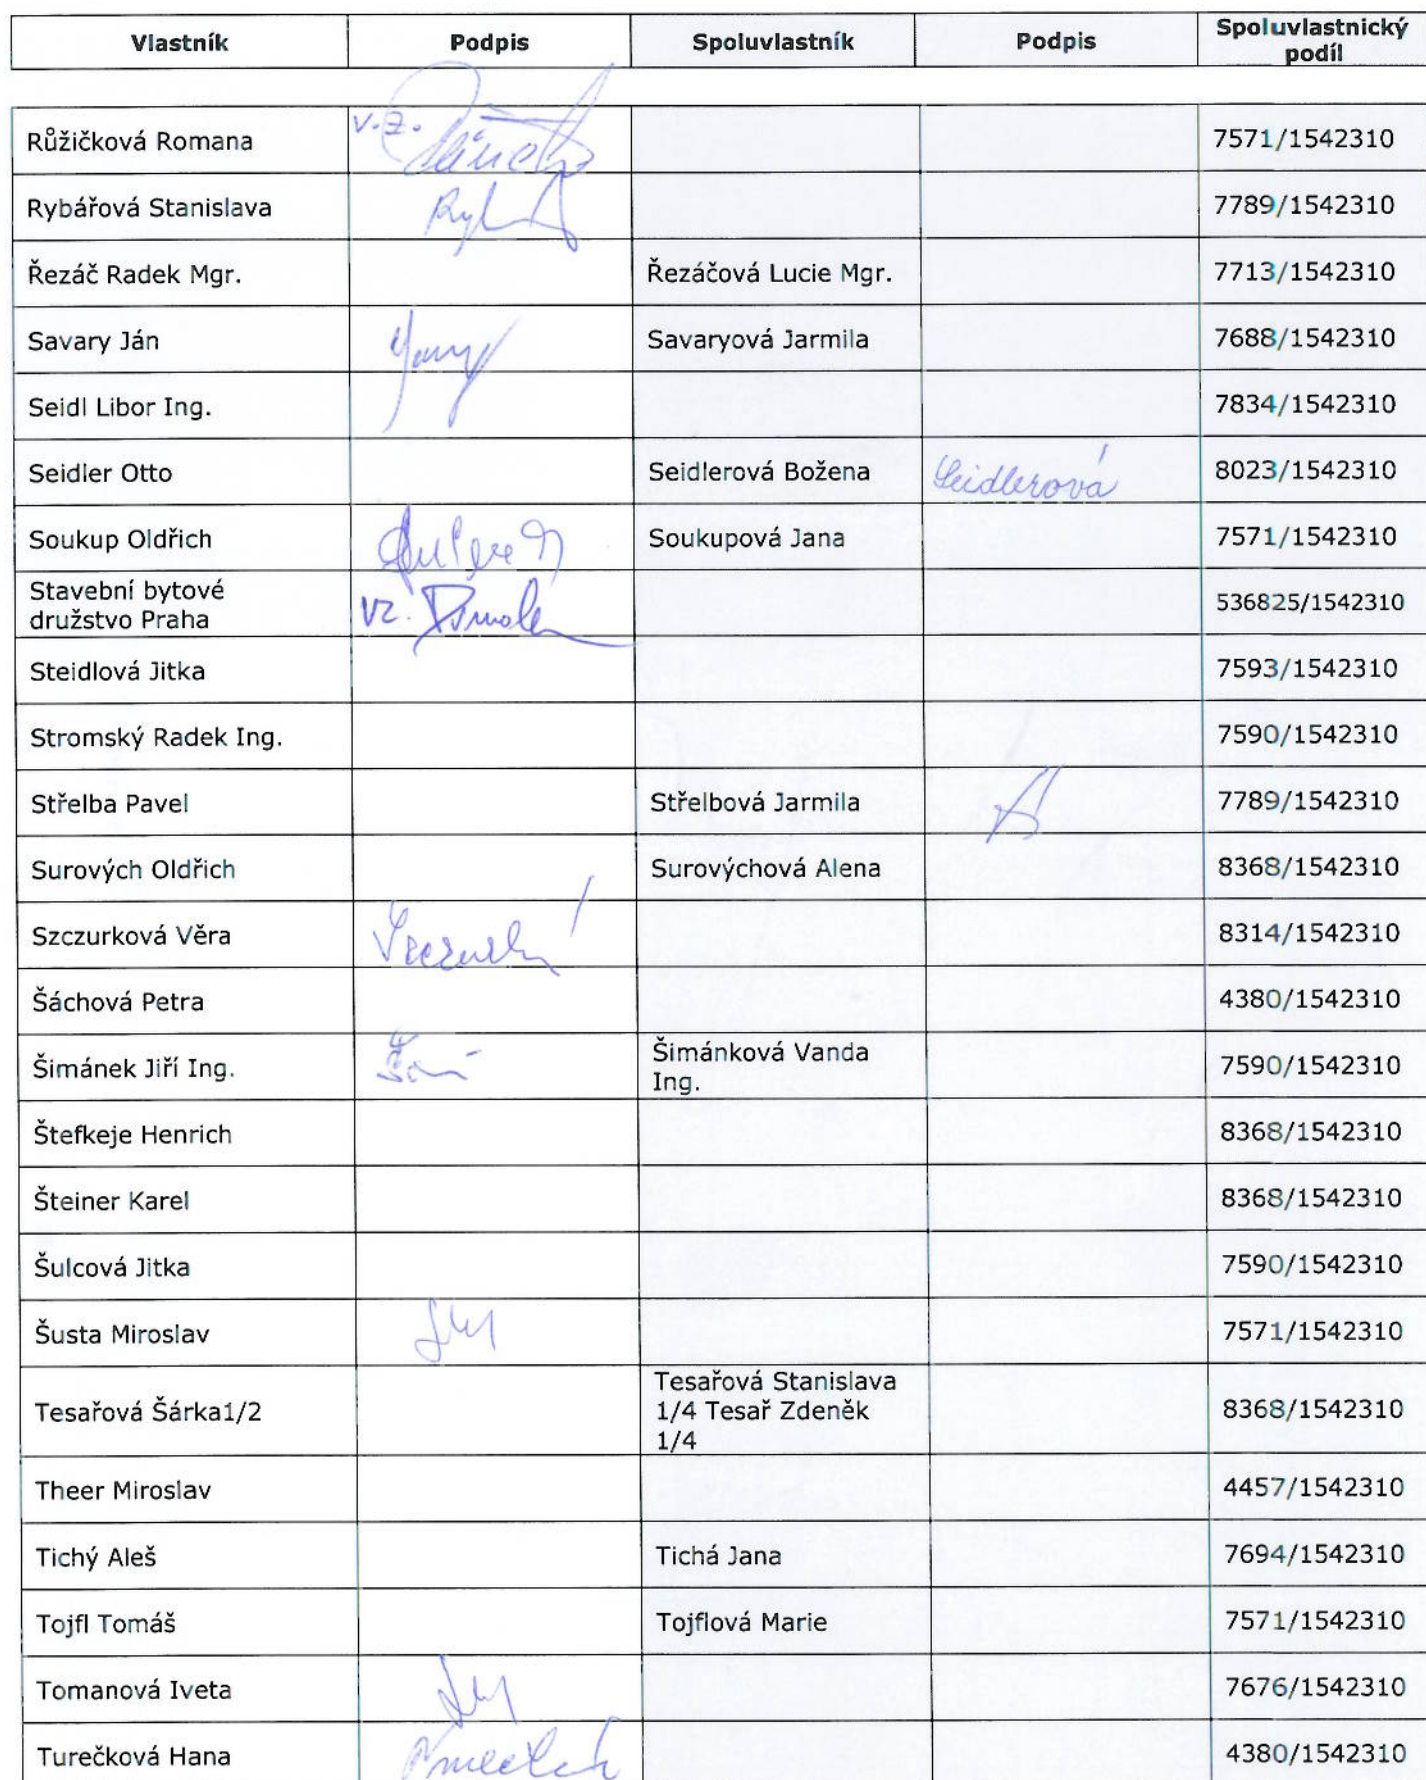 Vlastník Podpis Spoluvlastník Podpis Spoluvlastnický
podíl
Růžičková Romana v.z. 7571/1542310
Rybářová Stanislava 7789/1542310
Řezáč Radek Mgr. Řezáčová Lucie Mgr. 7713/1542310
Savary Ján Savaryová Jarmila 7688/1542310
Seidl Libor Ing. 7834/1542310
Seidler Otto Seidlerová Božena Seidlerová 8023/1542310
Soukup Oldřich Soukupová Jana 7571/1542310
Stavební bytové
družstvo Praha vz. 536825/1542310
Steidlová Jitka 7593/1542310
Stromský Radek Ing. 7590/1542310
Střelba Pavel Střelbová Jarmila 7789/1542310
Surových Oldřich Surovýchová Alena 8368/1542310
Szczurková Věra 8314/1542310
Šáchová Petra 4380/1542310
Šimánek Jiří Ing. Šimánková Vanda
Ing. 7590/1542310
Štefkeje Henrich 8368/1542310
Šteiner Karel 8368/1542310
Šulcová Jitka 7590/1542310
Šusta Miroslav 7571/1542310
Tesařová Šárka1/2 Tesařová Stanislava
1/4 Tesař Zdeněk
1/4 8368/1542310
Theer Miroslav 4457/1542310
Tichý Aleš Tichá Jana 7694/1542310
Tojfl Tomáš Tojflová Marie 7571/1542310
Tomanová Iveta 7676/1542310
Turečková Hana 4380/1542310